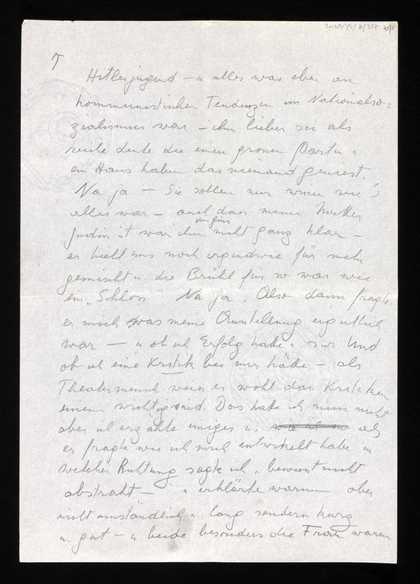 5
Hitlerjugend – u alles was eben an
kommunistischen Tendenzen im Nationalso-
zialismus war – ihm lieber sei als
reiche Leute die einen grossen Garten u
ein Haus haben das niemand geniesst.
Na ja – Sie sollen nur wissen wie's
alles war – auch dass meine Mutter
Jüdin ist war ihm nicht ganz klar –
er hielt uns noch irgendwie für mehr
gemischt u die Brühl für so was wie
ein Schloss Na ja. Also dann fragte
er mich was meine Ausstellung eigentlich
war – u ob ich Erfolg hatte u so. Und
ob ich eine Kritik bei mir hätte – als
Theatermensch weiss er wohl dass Kritiken
einem wichtig sind. Das hatte ich nun nicht
aber ich erzählte einiges u. als
er fragte wie ich mich entwickelt habe in
welcher Richtung sagte ich, bewusst nicht
abstrakt – u erklärte warum aber
nicht umständlich u lang sondern kurz
u. gut – u beide besonders die Frau waren